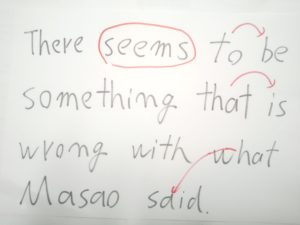 There seems to be
something that is
wrong with what
Masao said.